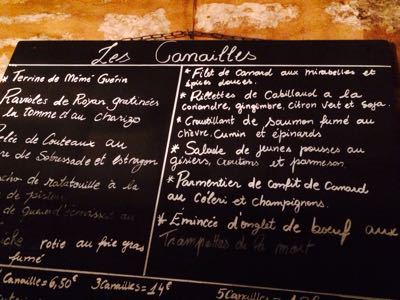 Les Canailles
* Terrine de Mémé Guérin
Ravioles de Royan gratinées
tomme d'au chorizo
lée de Couteaux au
de Sobrassade et estragon
de ratatouille à la
de
rotie au foie gras
fumé
* Filet de Canard aux mirabelles et
épices douces.
* Rillettes de Cabillaud a la
coriandre, gingimbre, citron vert et soja.
* Croustillant de saumon fumé au
chèvre. Cumin et épinards
* Salade de jeunes pousses au
gésiers, croutons et parmesan.
* Parmentier de confit de Canard
au céleri et champignons.
* Emincée d'onglet de boeuf aux
Trompettes de la mort
Canaille = 6,50€ 3 Canailles = 14€ 5 Canailles =